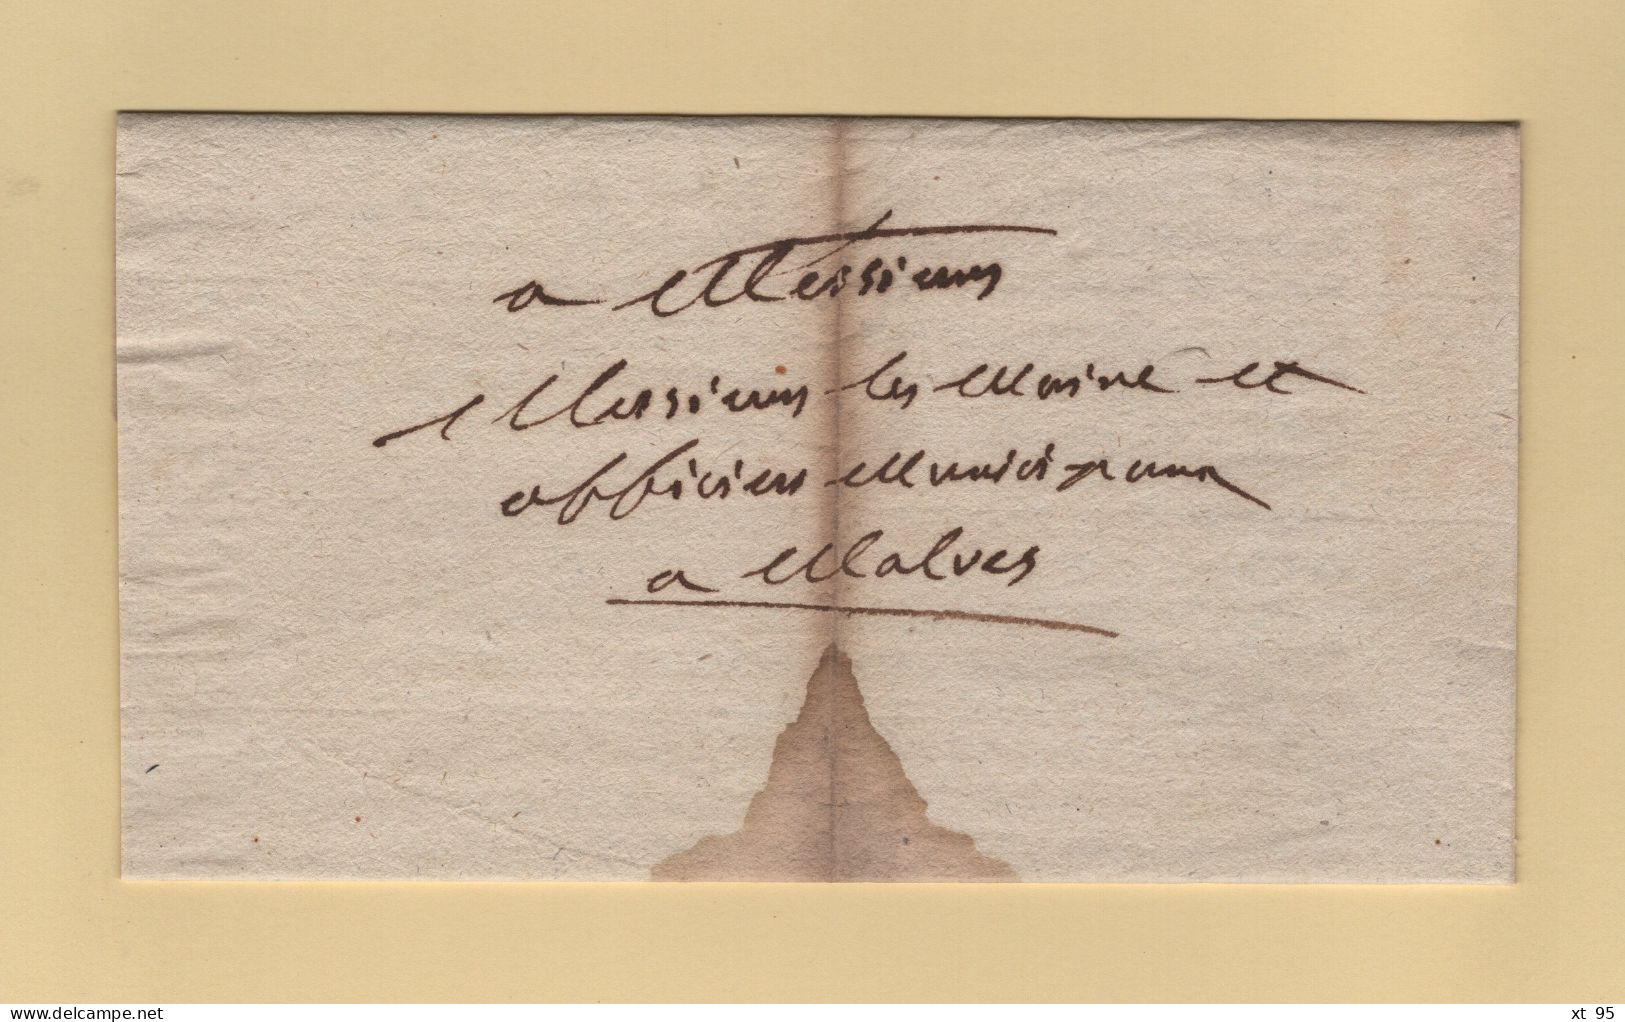 a Messieurs
Messieurs les Maire et
officiers Municipaux
a Malves
www.delcampe.net
xt 95